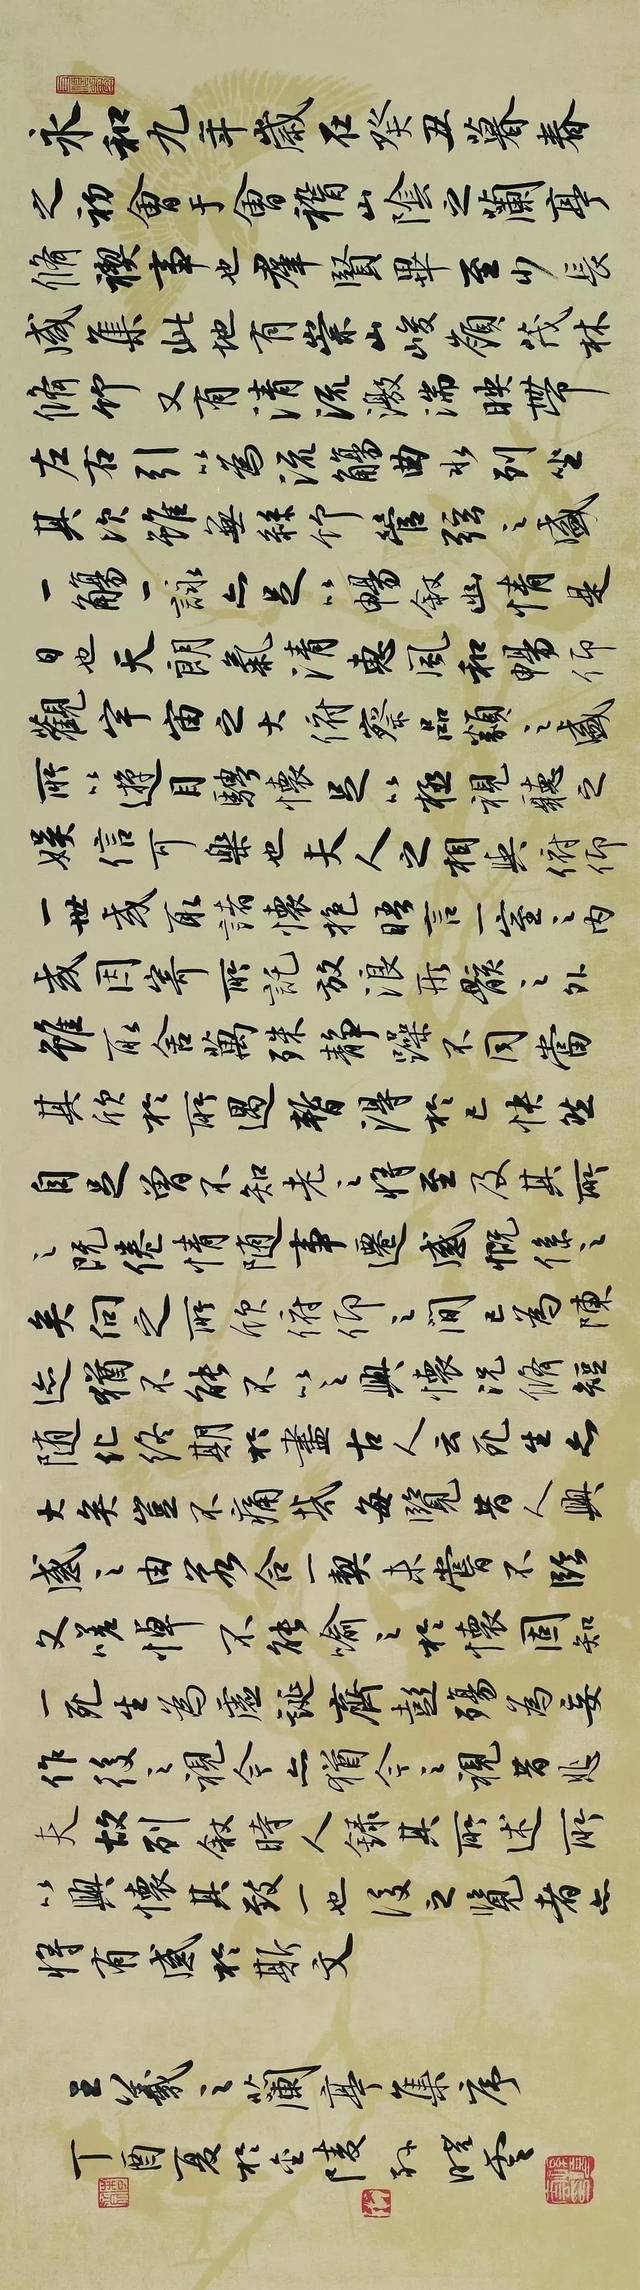 永和九年歲在癸丑暮春
之初會于會稽山陰之蘭亭
脩禊事也羣賢畢至少長
咸集此地有崇山峻嶺茂林
脩竹又有清流激湍映帶
左右引以為流觴曲水列坐
其次雖無絲竹管弦之盛
一觴一詠亦足以暢敘幽情是
日也天朗氣清惠風和暢仰
觀宇宙之大俯察品類之盛
所以遊目騁懷足以極視聽之
娛信可樂也夫人之相與俯仰
一世或取諸懷抱晤言一室之內
或因寄所託放浪形骸之外
雖取舍萬殊靜躁不同當
其欣於所遇暫得於己快然
自足曾不知老之將至及其所
之既倦情随事遷感慨係之
矣向之所欣俯仰之間已為陳
迹猶不能不以之興懷況脩短
随化終期於盡古人云死生亦
大矣豈不痛哉每覽昔人興
感之由若合一契未嘗不臨
文嗟悼不能喻之於懷固知
一死生為虛誕齊彭殤為妄
作後之視今亦猶今之視昔悲
夫故列敘時人錄其所述所
以興懷其致一也後之覽者亦
將有感於斯文
王羲之蘭亭集序
丁酉夏於金陵孫曉雲